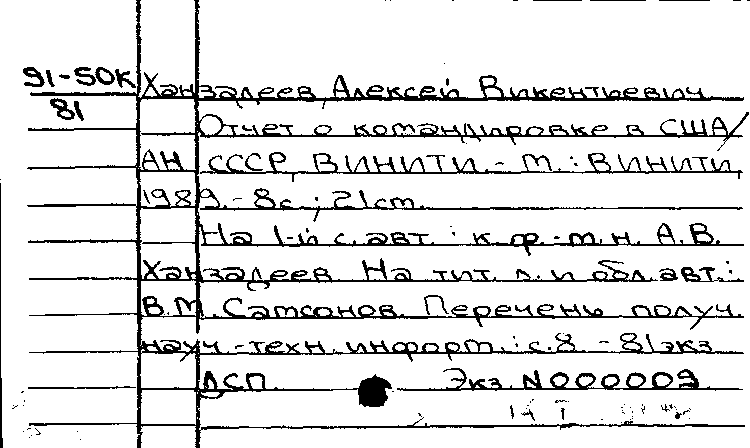 91-50К Ханзадеев Алексей Викентьевич
81
Отчет о командировке в США/
АН СССР, ВИНИТИ.- М.: ВИНИТИ,
1989.- 8с.; 21см.
На 1-й с. авт.: к.ф.-м.н. А.В.
Ханзадеев. На тит. л. и обл. авт.:
В.М. Самсонов. Перечень получ.
науч.-техн. информ.: с.8 - 81экз
ДСП. Экз. N000009